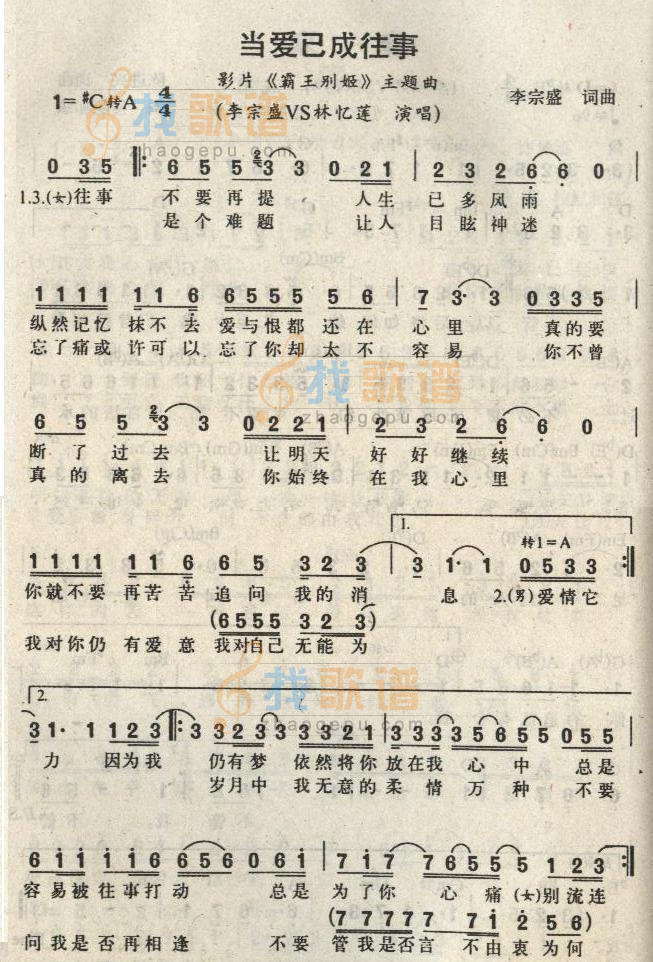 当爱已成往事
影片《霸王别姬》主题曲
1=#C转A 4/4 (李宗盛VS林忆莲 演唱) 李宗盛 词曲
找歌谱
zhaogepu.com
0 3 5 𝄆 6 5 5 2/3 3 | 0 2 1 | 2 3 2 6 6 0 |
1.3.(女)往事 不要再提 人生 已多风雨
是个难题 让人 目眩神迷
1 1 1 1 1 1 6 6 5 5 5 5 6 | 7 3· 3 0 3 3 5 |
纵然记忆 抹不去 爱与恨都 还在 心里 真的要
忘了痛或 许可以 忘了你却 太不 容易 你不曾
找歌谱
zhaogepu.com
6 5 5 2/3 3 0 2 2 1 | 2 3 2 6 6 0 |
断了过去 让明天 好好继续
真的离去 你始终 在我心里
1. 转1=A
1 1 1 1 1 1 6 6 6 5 3 2 3 | 3 1· 1 0 5 3 3 :‖
你就不要 再苦苦 追问 我的消 息 2.(男)爱情它
(6 5 5 5 3 2 3)
我对你仍 有爱意 我对自己 无能为
找歌谱
zhaogepu.com
2.
3 1· 1 1 2 3 :‖: 3 3 2 3 3 3 3 2 1 | 3 3 3 3 5 6 5 5 0 5 5 |
力 因为我 仍有梦 依然将你 放在我 心中 总是
岁月中 我无意的 柔情万种 不要
6 1 1 1 1 6 6 5 6 0 6 1 | 7 1 7 7 6 5 5 5 1 2 3 :‖
容易被往事打动 总是 为了你 心痛 (女)别流连
(7 7 7 7 7 7 1 2 5 6)
问我是否再相逢 不要 管我是否言 不由衷为何